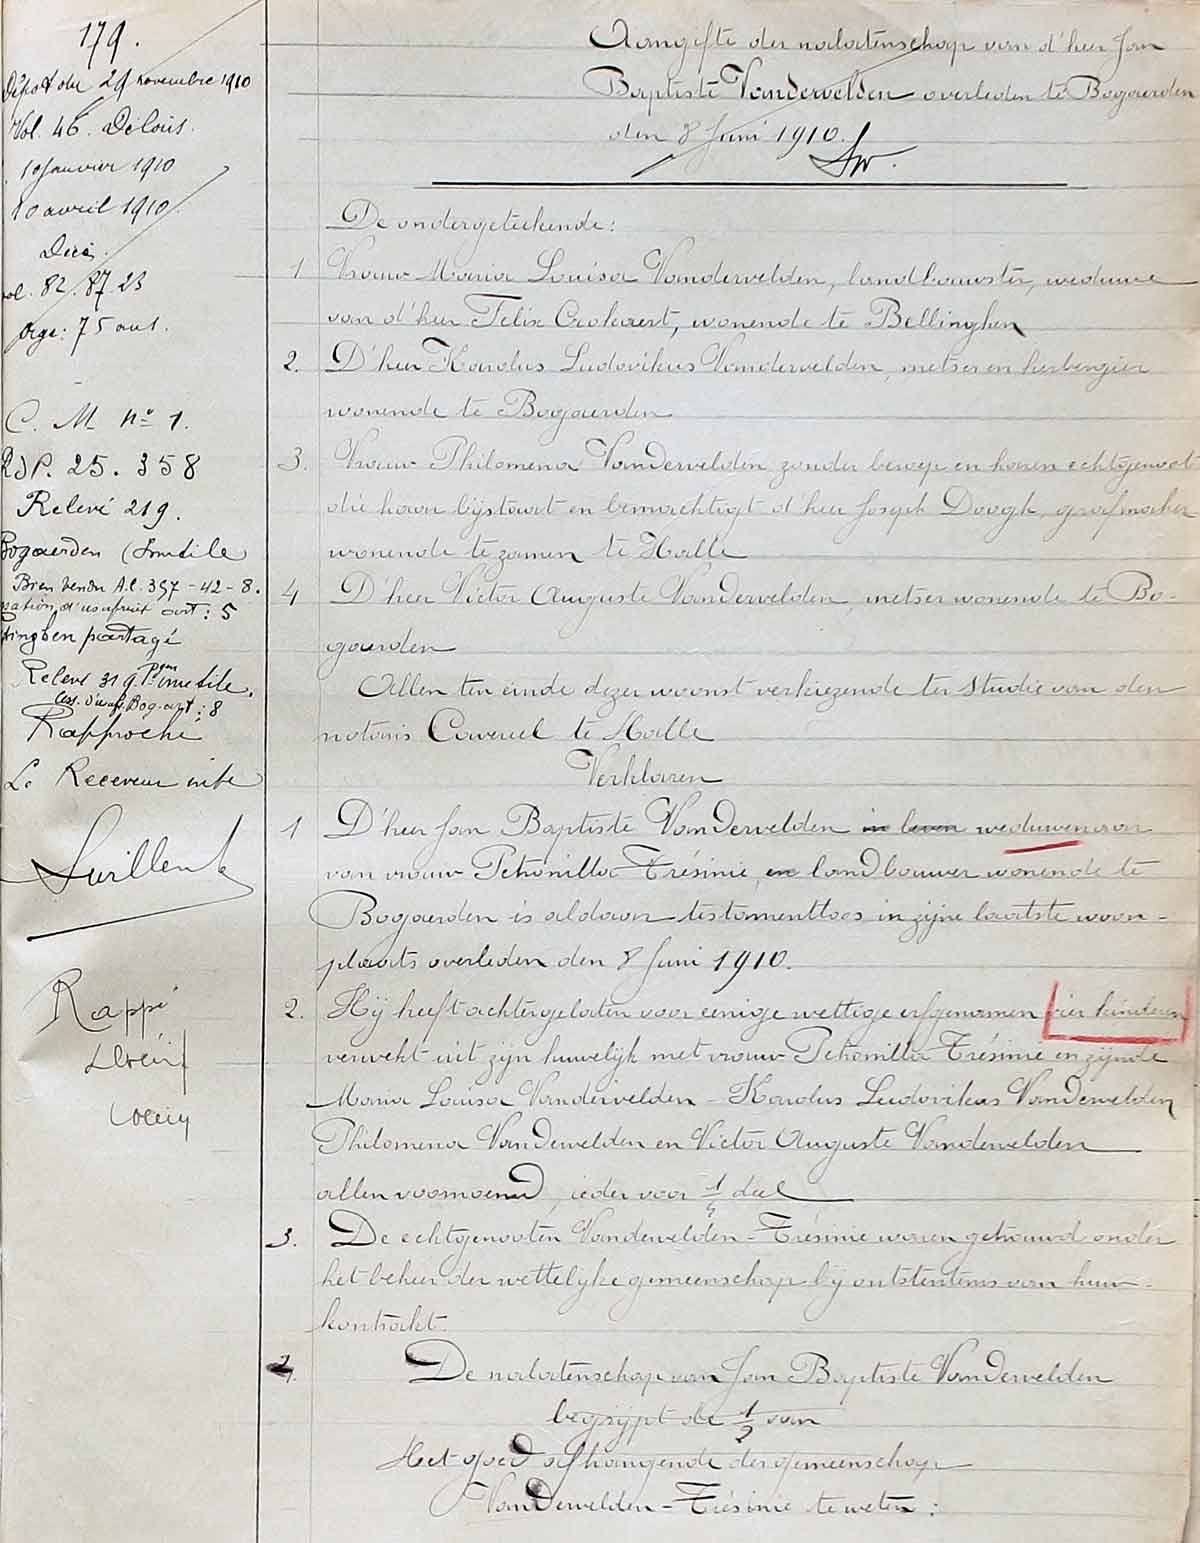 179.
Dépot du 29 novembre 1910
Vol. 46. Délais.
10 janvier 1910
10 avril 1910.
Décès.
vol. 82. 87. 23
age: 75 ans.
C. M. nº 1.
RJP. 25. 358
Relevé 219.
Bogaerden (Inutile
Bien vendu A.C. 397-42-8.
d'usufruit art: 5
partagé
Relevé 319. inutile.
Bog. art: 8
Rapproché
Le Receveur
Rappé
Aangifte der nalatenschap van d'heer Jan
Baptiste Vandervelden overleden te Bogaerden
den 8 Juni 1910.
De ondergeteekende:
1 Vrouw Maria Louisa Vandervelden, landbouwster, weduwe
van d'heer Felix Crokaert, wonende te Bellinghen
2. D'heer Karolus Ludovikus Vandervelden, metser en herbergier
wonende te Bogaerden
3. Vrouw Philomena Vandervelden, zonder beroep en haren echtgenoot
die haar bijstaat en bemachtigt d'heer Joseph Doogh, grafmaker
wonende te zamen te Halle
4 D'heer Victor Auguste Vandervelden, metser wonende te Bo-
gaerden
Allen ten einde dezer woonst verkiezende ter studie van den
notaris Coverel te Halle
Verklaren
1 D'heer Jan Baptiste Vandervelden in leven weduwenaar
van vrouw Petronilla Trésinie, en landbouwer wonende te
Bogaerden is aldaar testamentloos in zijne laatste woon-
plaats overleden den 8 Juni 1910.
2. Hij heeft achtergelaten voor eenige wettige erfgenamen vier kinderen
verwekt uit zijn huwelijk met vrouw Petronilla Trésinie en zijnde
Maria Louisa Vandervelden - Karolus Ludovikus Vandervelden
Philomena Vandervelden en Victor Auguste Vandervelden
allen voornoemd, ieder voor 1/4 deel
3. De echtgenooten Vandervelden - Trésinie waren getrouwd onder
het beheer der wettelijke gemeenschap bij ontstentenis van huw-
kontrakt.
4. De nalatenschap van Jan Baptiste Vandervelden
begrijpt de 1/2 van
Het goed afhangende der gemeenschap
Vandervelden - Trésinie te weten: